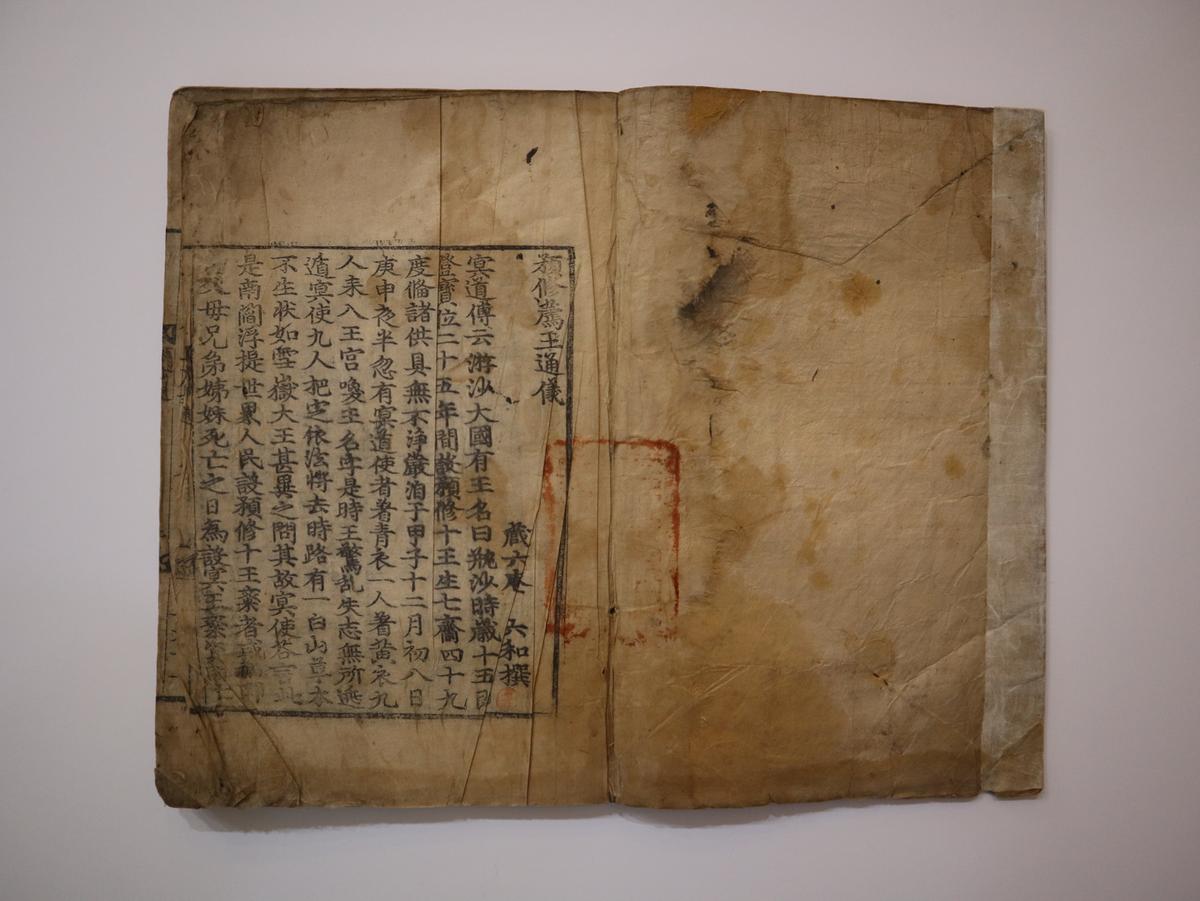 預修薦王通儀
蔵六庵 六和撰
冥道傳云游沙大國有王名曰甁沙時歲十五日
登寶位二十五年間故預修十王生七齋四十九
度俻諸供具無不淨嚴洎于甲子十二月初八日
庚申夜半忽有冥道使者著青衣一人著黃衣九
人来入王宮喚王名字是時王驚乱失志無所逃
遁冥使九人把定依法將去時路有一白山草木
不生状如雪嶽大王甚異之問其故冥使荅言此
是南閻浮提世界人民設預修十王齋者或
父母兄弟姊妹死亡之日為設冥王齋